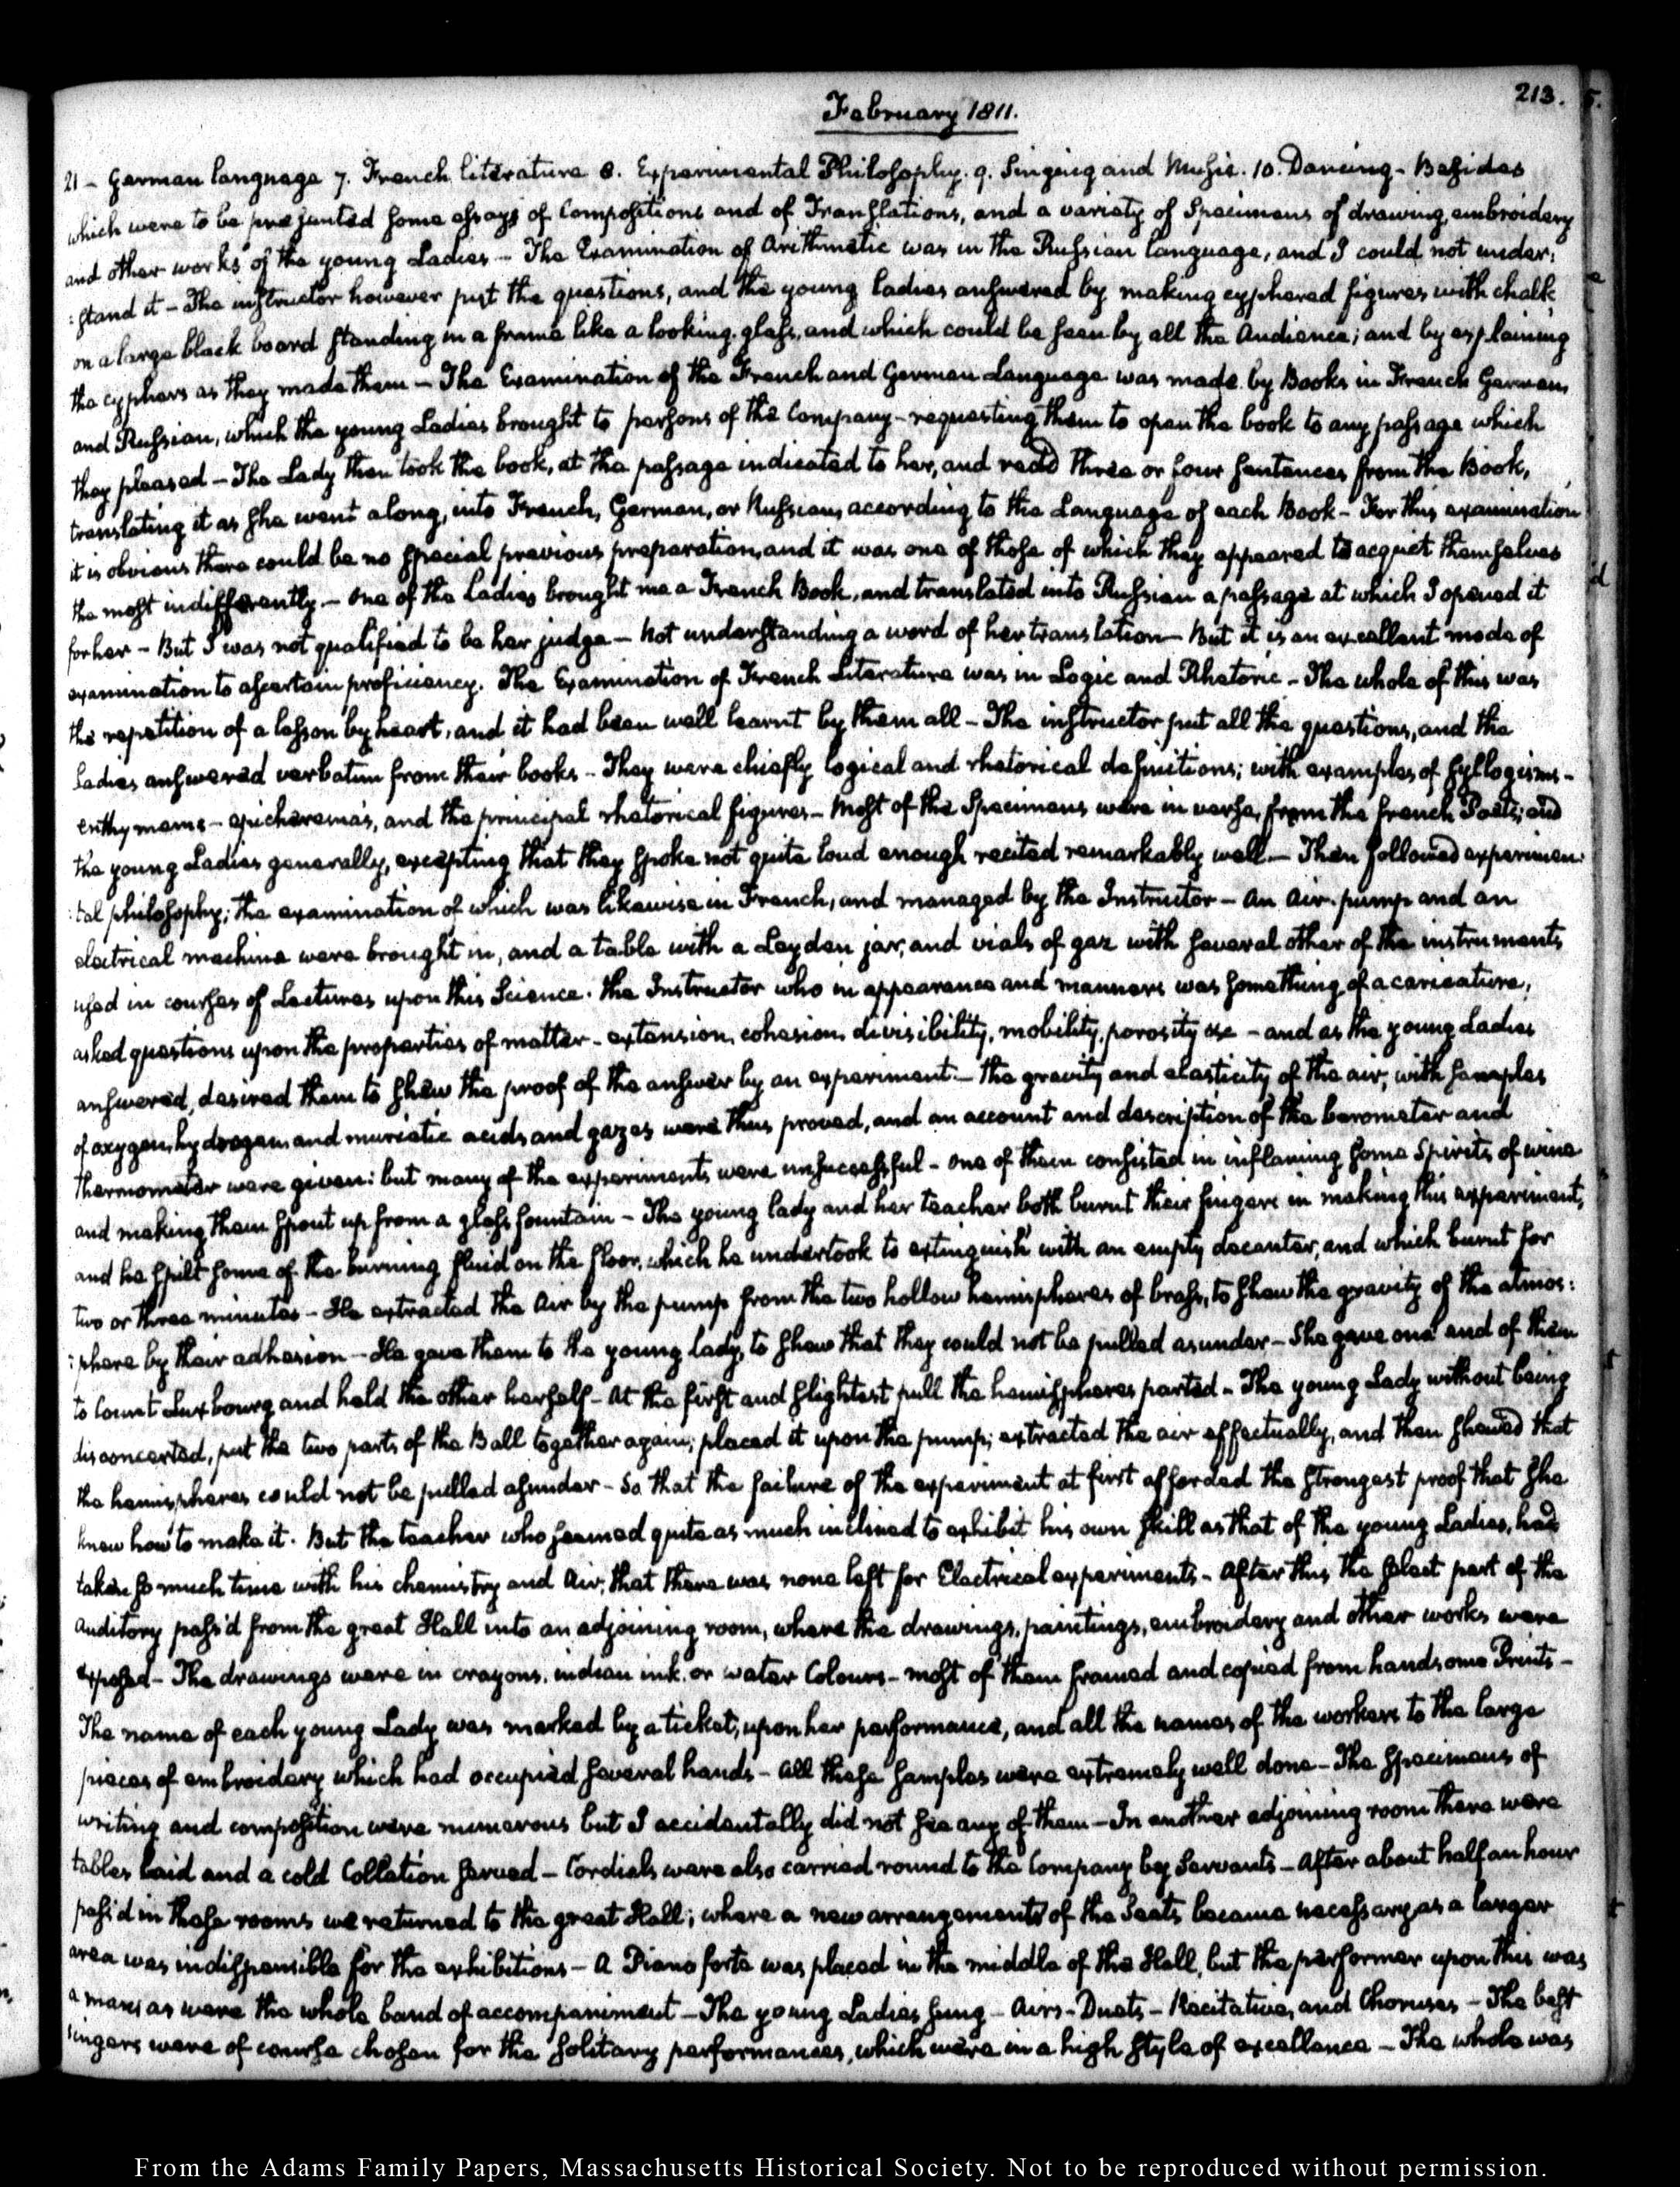 213.
February 1811.
21 - German language 7. French literature 8. Experimental Philosophy. 9. Singing and Music. 10. Dancing - Besides
which were to be presented some essays of Compositions and of Translations, and a variety of Specimens of drawing, embroidery
and other works of the young Ladies - The Examination of Arithmetic was in the Russian language, and I could not under:
:stand it - The instructor however put the questions, and the young ladies answered by making cyphered figures with chalk
on a large black board standing in a frame like a looking-glass, and which could be seen by all the Audience; and by explaining
the cyphers as they made them - The Examination of the French and German Language was made by Books in French German,
and Russian, which the young Ladies brought to persons of the Company - requesting them to open the book to any passage which
they pleased - The Lady then took the book, at the passage indicated to her, and read three or four sentences from the Book,
translating it as she went along, into French, German, or Russian, according to the Language of each Book - For this examination
it is obvious there could be no special previous preparation, and it was one of those of which they appeared to acquit themselves
the most indifferently - One of the Ladies brought me a French Book, and translated into Russian a passage at which I opened it
for her - But I was not qualified to be her judge - Not understanding a word of her translation - But it is an excellent mode of
examination to ascertain proficiency. The Examination of French Literature was in Logic and Rhetoric - The whole of this was
the repetition of a lesson by heart, and it had been well learnt by them all - The instructor put all the questions, and the
ladies answered verbatim from their books - They were chiefly logical and rhetorical definitions; with examples of syllogisms -
enthymems - epicheremas, and the principal rhetorical figures - Most of the Specimens were in verse, from the french Poets; and
the young Ladies generally, excepting that they spoke not quite loud enough recited remarkably well - Then followed experimen:
:tal philosophy; the examination of which was likewise in French, and managed by the Instructor - An Air-pump and an
electrical machine were brought in, and a table with a Leyden jar, and vials of gaz with several other of the instruments
used in courses of Lectures upon this Science. The Instructor who in appearance and manners was something of a caricature,
asked questions upon the properties of matter - extension, cohesion, divisibility, mobility, porosity &c - and as the young Ladies
answered, desired them to shew the proof of the answer by an experiment - The gravity and elasticity of the air, with samples
of oxygen, hydrogen and muriatic acids and gazes were thus proved, and an account and description of the barometer and
thermometer were given: but many of the experiments were unsuccessful - One of them consisted in inflaming some Spirits of wine
and making them spout up from a glass fountain - The young lady and her teacher both burnt their fingers in making this experiment,
and he spilt some of the burning fluid on the floor, which he undertook to extinguish with an empty decanter, and which burnt for
two or three minutes - He extracted the Air by the pump from the two hollow hemispheres of brass, to shew the gravity of the atmos:
:phere by their adhesion - He gave them to the young lady, to shew that they could not be pulled asunder - She gave one end of them
to Count Luxbourg and held the other herself - At the first and slightest pull the hemispheres parted - The young Lady without being
disconcerted, put the two parts of the Ball together again; placed it upon the pump; extracted the air effectually, and then shewed that
the hemispheres could not be pulled asunder - So that the failure of the experiment at first afforded the strongest proof that she
knew how to make it. But the teacher who seemed quite as much inclined to exhibit his own skill as that of the young Ladies, had
taken so much time with his chemistry and Air, that there was none left for Electrical experiments - After this the select part of the
Auditory pass'd from the great Hall into an adjoining room, where the drawings, paintings, embroidery and other works were
exposed - The drawings were in crayons, indian ink, or water Colours - most of them framed and copied from handsome Prints -
The name of each young Lady was marked by a ticket, upon her performance, and all the names of the workers to the large
pieces of embroidery which had occupied several hands - All these samples were extremely well done - The specimens of
writing and composition were numerous but I accidentally did not see any of them - In another adjoining room there were
tables laid and a cold Collation served - Cordials were also carried round to the Company by Servants - After about half an hour
pass'd in these rooms we returned to the great Hall; where a new arrangement of the Seats became necessary, as a larger
area was indispensible for the exhibitions - A Piano forte was placed in the middle of the Hall, but the performer upon this was
a man; as were the whole band of accompaniment - The young Ladies sung - Airs - Duets - Recitative, and Choruses - The best
singers were of course chosen for the solitary performances, which were in a high style of excellence - The whole was
From the Adams Family Papers, Massachusetts Historical Society. Not to be reproduced without permission.